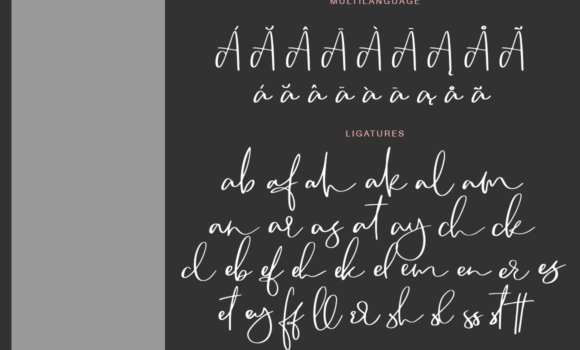 MULTILANGUAGE
Á Ă Â Ä À Ā Ą Å Ã
á ă â ä à ā ą å ã
LIGATURES
ab af ah ak al am
an ar as at ay ch ck
cl eb ef eh ek el em en er es
et ey ff ll or sh sl ss st tt